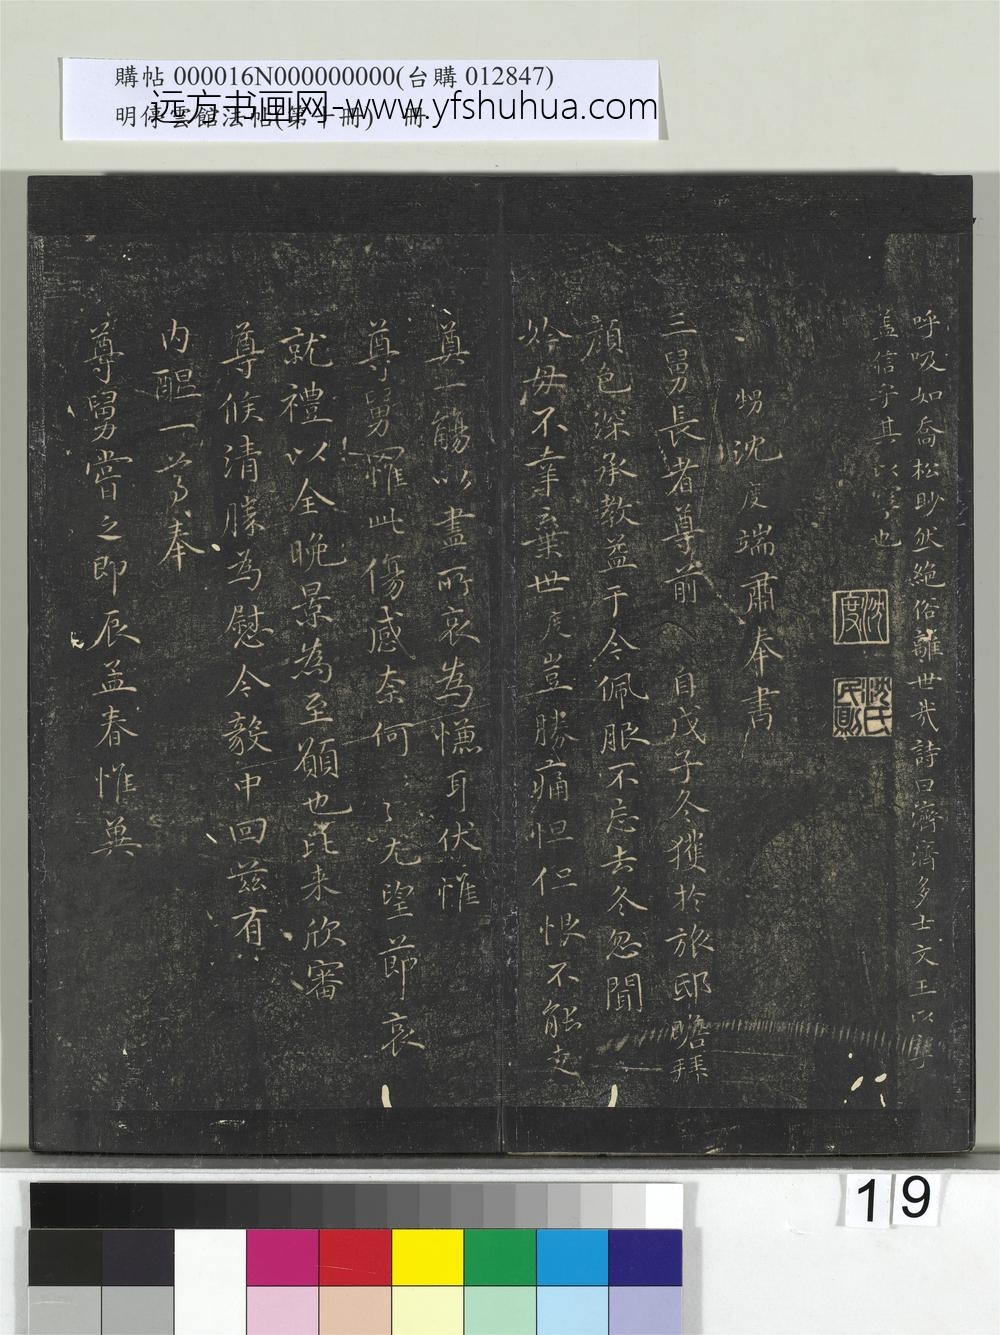 購帖 000016N000000000(台購 012847)
明停雲館法帖(第十冊) 冊
远方书画网-www.yfshuhua.com
呼吸如喬松眇然絶俗離世哉詩曰濟濟多士文王以寧
盖信乎其以寧也
沈度
沈氏民則
甥沈度端肅奉書
三舅長者尊前 自戊子冬獲於旅邸瞻拜
顔色深承教益于今佩服不忘去冬忽聞
妗母不幸棄世度豈勝痛怛但恨不能走
奠一觴以盡所哀為慊耳伏惟
尊舅罹此傷感奈何〻尤望節哀
就禮以全晚景為至願也比来欣審
尊候清勝為慰令毅中回兹有
内醖一尊奉
尊舅嘗之即辰孟春惟兾
19